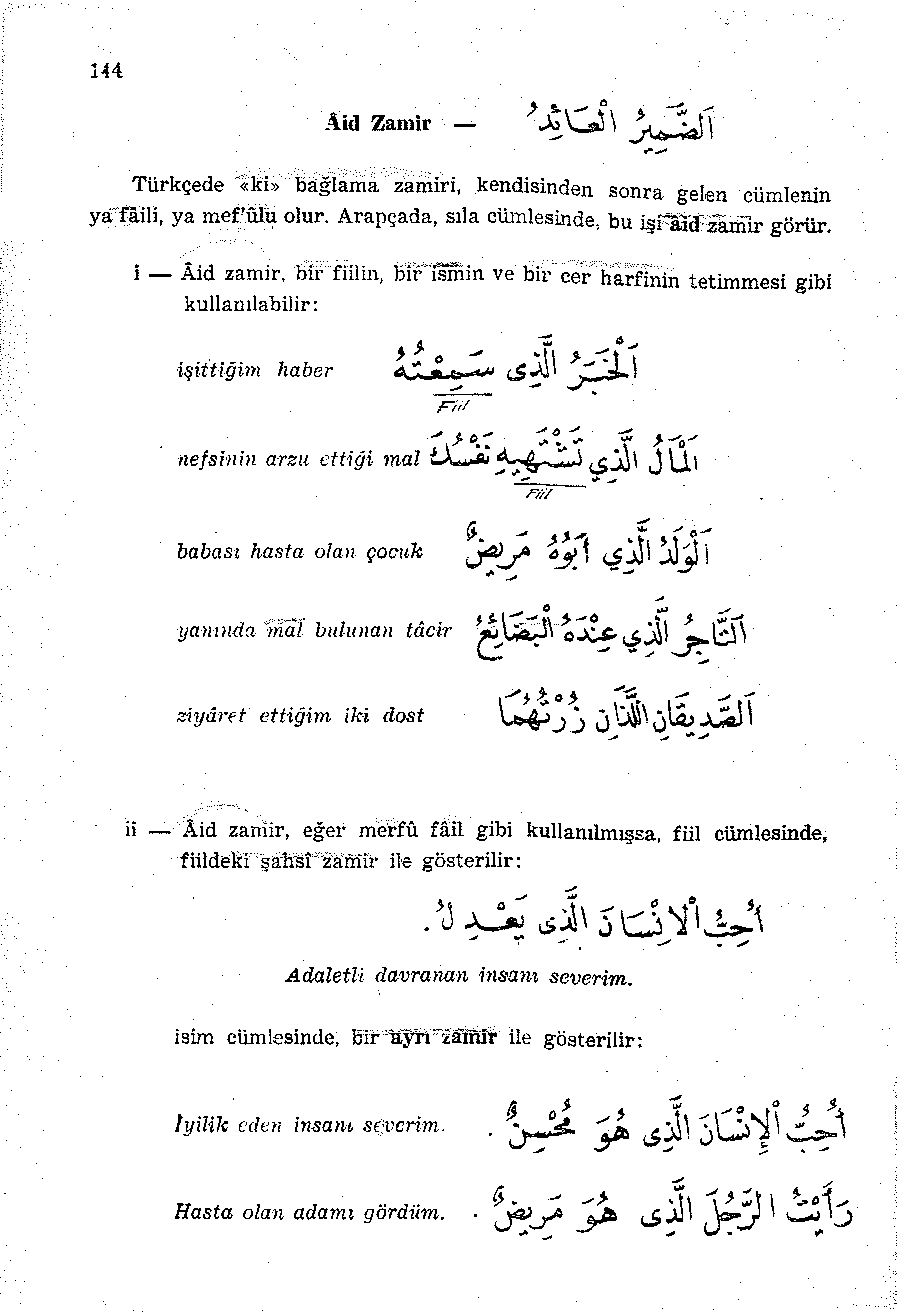 144
Âid Zamir — اَلضَّمِيرُ الْعَائِدُ
Türkçede «ki» bağlama zamiri, kendisinden sonra gelen cümlenin
ya fâili, ya mef'ûlü olur. Arapçada, sıla cümlesinde, bu işi âid zamir görür.
i — Âid zamir, bir fiilin, bir ismin ve bir cer harfinin tetimmesi gibi
kullanılabilir:
işittiğim haber اَلْخَبَرُ الَّذِى سَمِعْتُهُ
Fiil
nefsinin arzu ettiği mal اَلْمَالُ الَّذِي تَشْتَهِيهِ نَفْسُكَ
Fiil
babası hasta olan çocuk اَلْوَلَدُ الَّذِي أَبُوهُ مَرِيضٌ
yanında mal bulunan tâcir اَلتَّاجِرُ الَّذِي عِنْدَهُ الْبَضَائِعُ
ziyâret ettiğim iki dost اَلصَّدِيقَانِ اللَّذَانِ زُرْتُهُمَا
ii — Âid zamir, eğer merfû fâil gibi kullanılmışsa, fiil cümlesinde,
fiildeki şahsî zamir ile gösterilir:
أُحِبُّ الْاِنْسَانَ الَّذِى يَعْدِلُ.
Adaletli davranan insanı severim.
isim cümlesinde, bir ayrı zamir ile gösterilir:
İyilik eden insanı severim. أُحِبُّ الْإِنْسَانَ الَّذِى هُوَ مُحْسِنٌ .
Hasta olan adamı gördüm. رَأَيْتُ الرَّجُلَ الَّذِى هُوَ مَرِيضٌ .